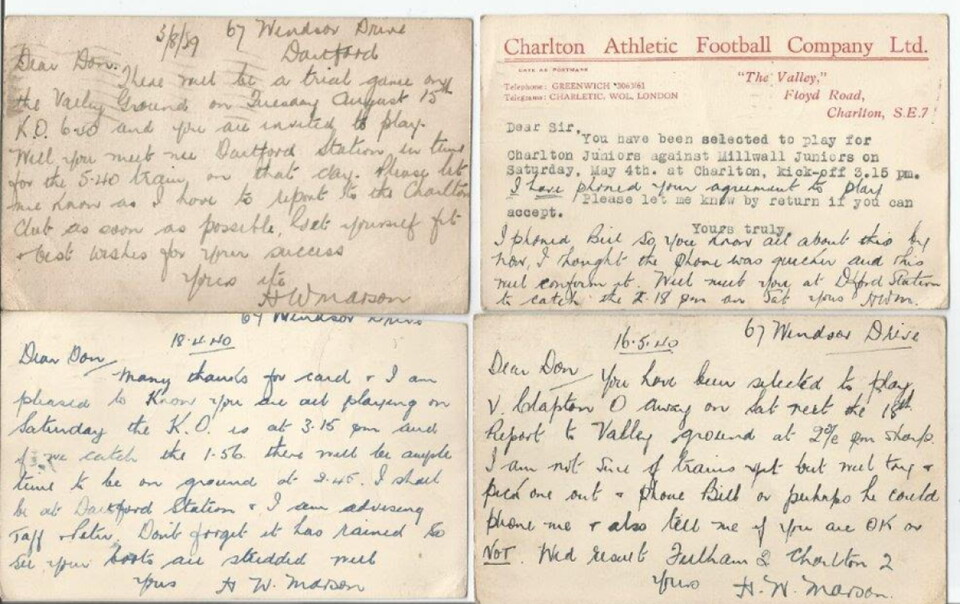 3/8/39 67 Windsor Drive
Dartford
Dear Don. There will be a trial game on
the Valley Ground on Tuesday August 15th
K.O. 6.40 and you are invited to play.
Will you meet me Dartford Station, in time
for the 5.40 train, on that day. Please let
me know as I have to report to the Charlton
Club as soon as possible, Get yourself fit
+ best wishes for your success
Yours
H W Marson
Charlton Athletic Football Company Ltd.
DATE AS POSTMARK
Telephone: GREENWICH
Telegrams: CHARLETIC, WOL, LONDON
"The Valley,"
Floyd Road,
Charlton, S.E.7
Dear Sir,
You have been selected to play for
Charlton Juniors against Millwall Juniors on
Saturday, May 4th. at Charlton, kick-off 3.15 pm.
I have phoned your agreement to play
Please let me know by return if you can
accept.
Yours truly,
I phoned Bill so you know all about this by
now, I thought the phone was quicker and this
will confirm it. Will meet you at Dford Station
to catch the 18 pm on Sat yours HWM.
67 Windsor Drive
18.4.40
Dear Don,
Many thanks for card + I am
pleased to know you are all playing on
Saturday the K.O. is at 3.15 pm and
if we catch the 1.56 there will be ample
time to be on ground at 2.45. I shall
be at Dartford Station + I am advising
Taff + Peter. Don't forget it has rained so
see your boots are studded well
Yours H W. Marson
67 Windsor Drive
16.5.40
Dear Don
You have been selected to play
v. Clapton O away on Sat next the 18th
Report to Valley ground at pm sharp.
I am not sure of trains yet but will try +
pick one out + phone Bill or perhaps he could
phone me + also tell me if you are OK or
NOT. Wed result Fulham 2 Charlton 2
Yours H. W. Marson.